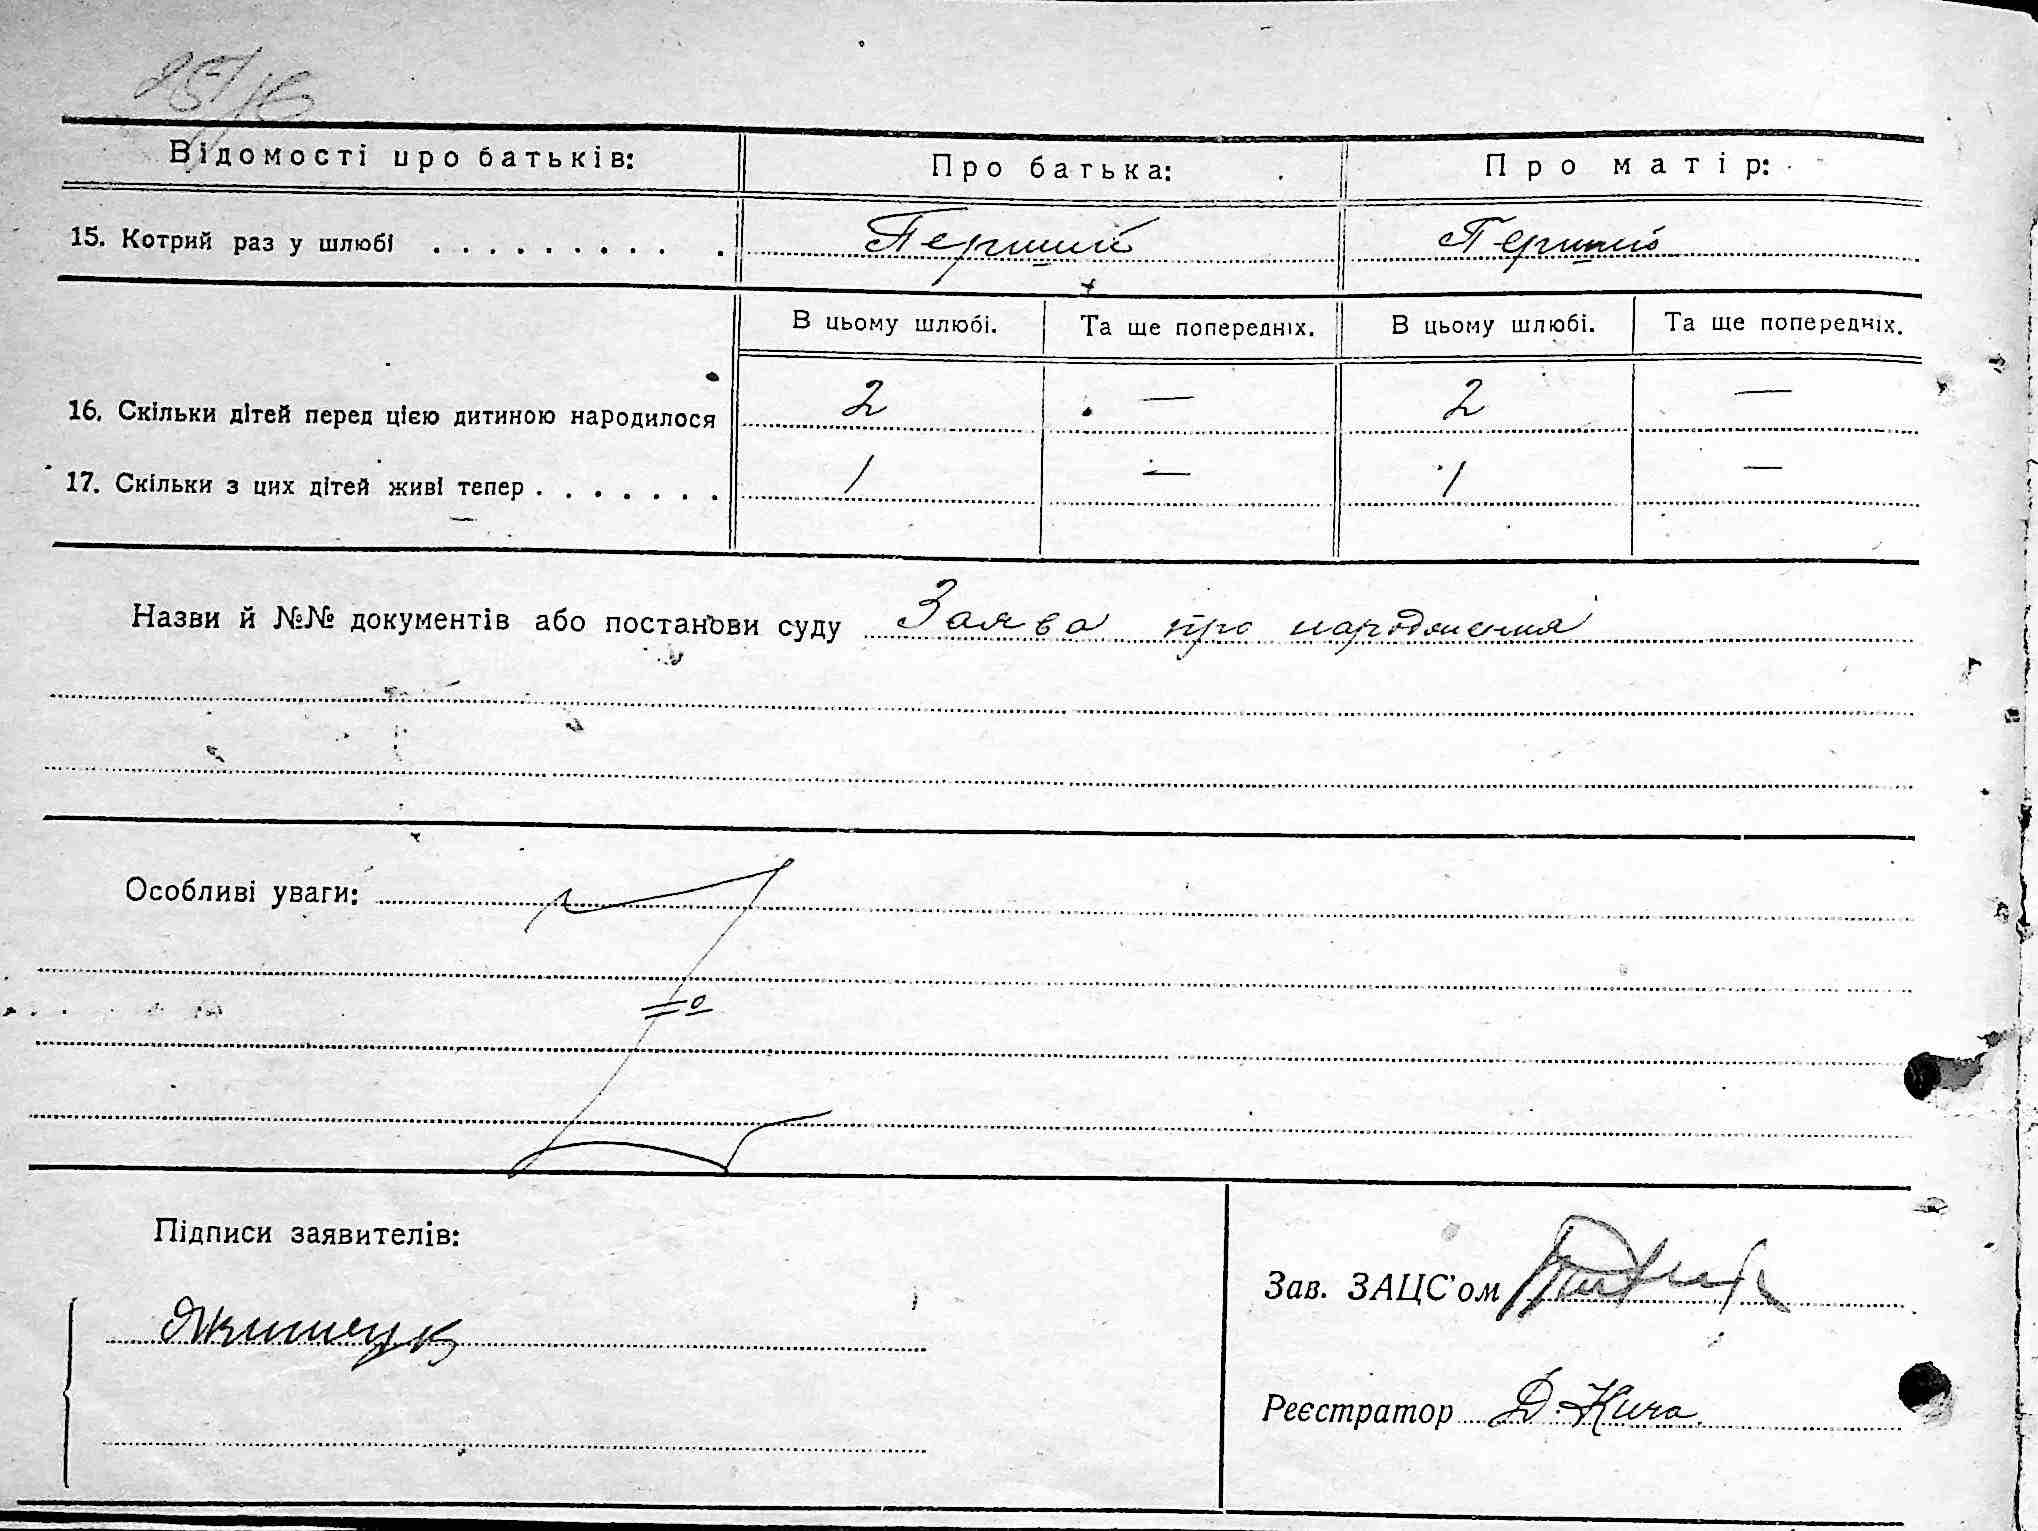 Відомості про батьків: Про батька: Про матір:
15. Котрий раз у шлюбі . . . . . . . . . . Перший Перший
В цьому шлюбі. Та ще попередніх. В цьому шлюбі. Та ще попередніх.
16. Скільки дітей перед цією дитиною народилося 2 — 2 —
17. Скільки з цих дітей живі тепер . . . . . . . 1 — 1 —
Назви й №№ документів або постанови суду Заява про народження
Особливі уваги:
Підписи заявителів:
Зав. ЗАЦС'ом
Реєстратор Д.